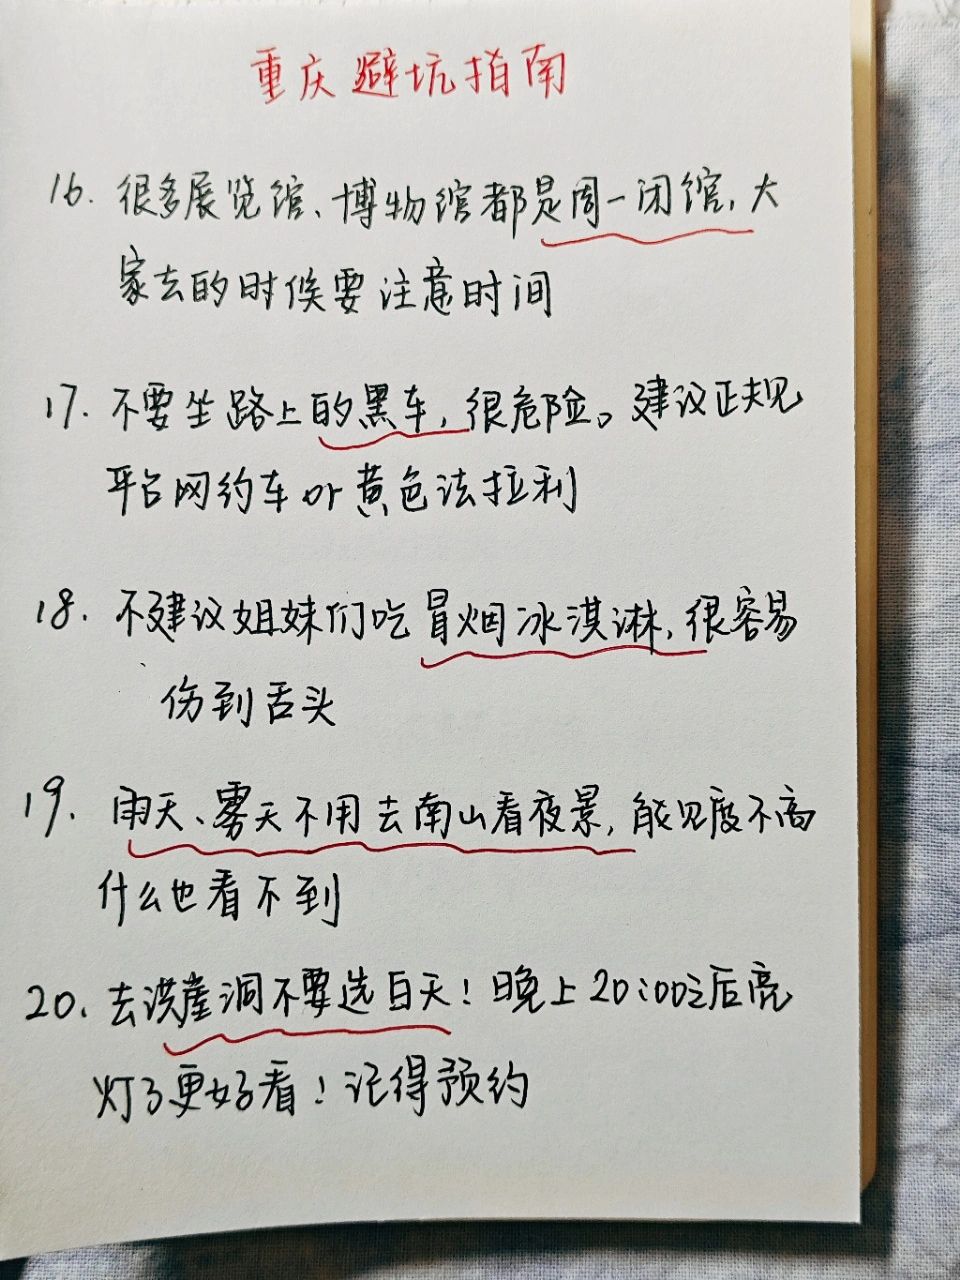 重庆避坑指南
16. 很多展览馆、博物馆都是周一闭馆,大
家去的时候要注意时间
17. 不要坐路上的黑车,很危险。建议正规
平台网约车or黄色法拉利
18. 不建议姐妹们吃冒烟冰淇淋,很容易
伤到舌头
19. 雨天、雾天不用去南山看夜景,能见度不高
什么也看不到
20. 去洪崖洞不要选白天!晚上20:00之后亮
灯了更好看!记得预约